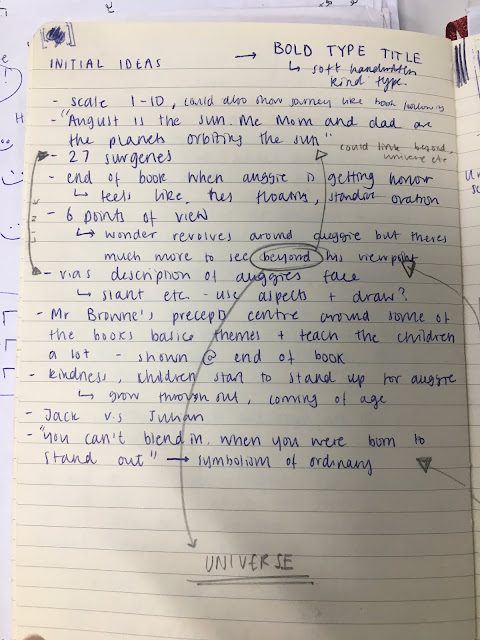 INITIAL IDEAS → BOLD TYPE TITLE
↳ soft handwritten
kind type.
- scale 1-10, could also show journey like book following
- "August is the sun. Me Mom and dad are
the planets orbiting the sun"
could link beyond,
universe etc
- 27 surgeries
- end of book when auggie is getting honor
↳ feels like hes floating, standing ovation
- 6 points of view
↳ wonder revolves around auggie but theres
much more to see beyond his viewpoint
- vias description of auggies face
↳ slant etc - use aspects + draw?
- Mr Browne's precepts centre around some of
the books basice themes + teach the children
a lot - shown @ end of book
- kindness, children start to stand up for auggie
↳ grow throughout, coming of age
- Jack v.s Julian
- "you can't blend in, when you were born to
stand out" → symbolism of ordinary
UNIVERSE